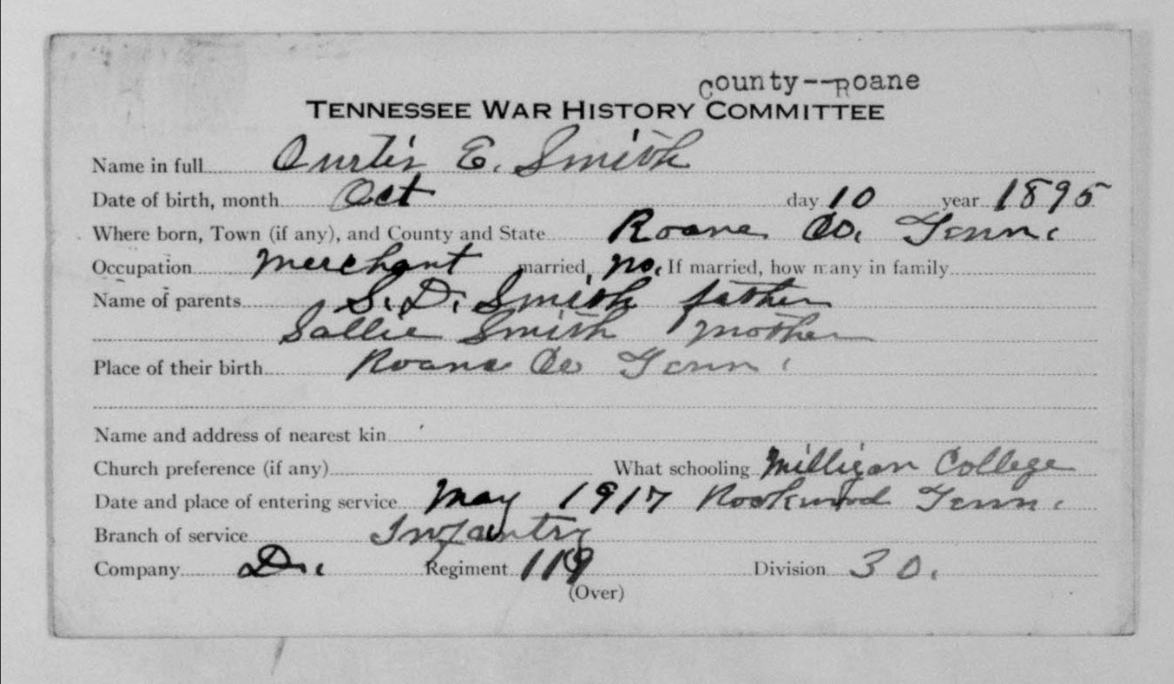 County--Roane
TENNESSEE WAR HISTORY COMMITTEE
Name in full Curtis E. Smith
Date of birth, month Oct day 10 year 1895
Where born, Town (if any), and County and State Roane Co. Tenn.
Occupation Merchant married, no. If married, how many in family
Name of parents S. D. Smith father
Sallie Smith Mother
Place of their birth Roane Co Tenn.
Name and address of nearest kin
Church preference (if any) What schooling Milligan College
Date and place of entering service May 1917 Rockwood Tenn.
Branch of service Infantry
Company D. Regiment 119 Division 30.
(Over)